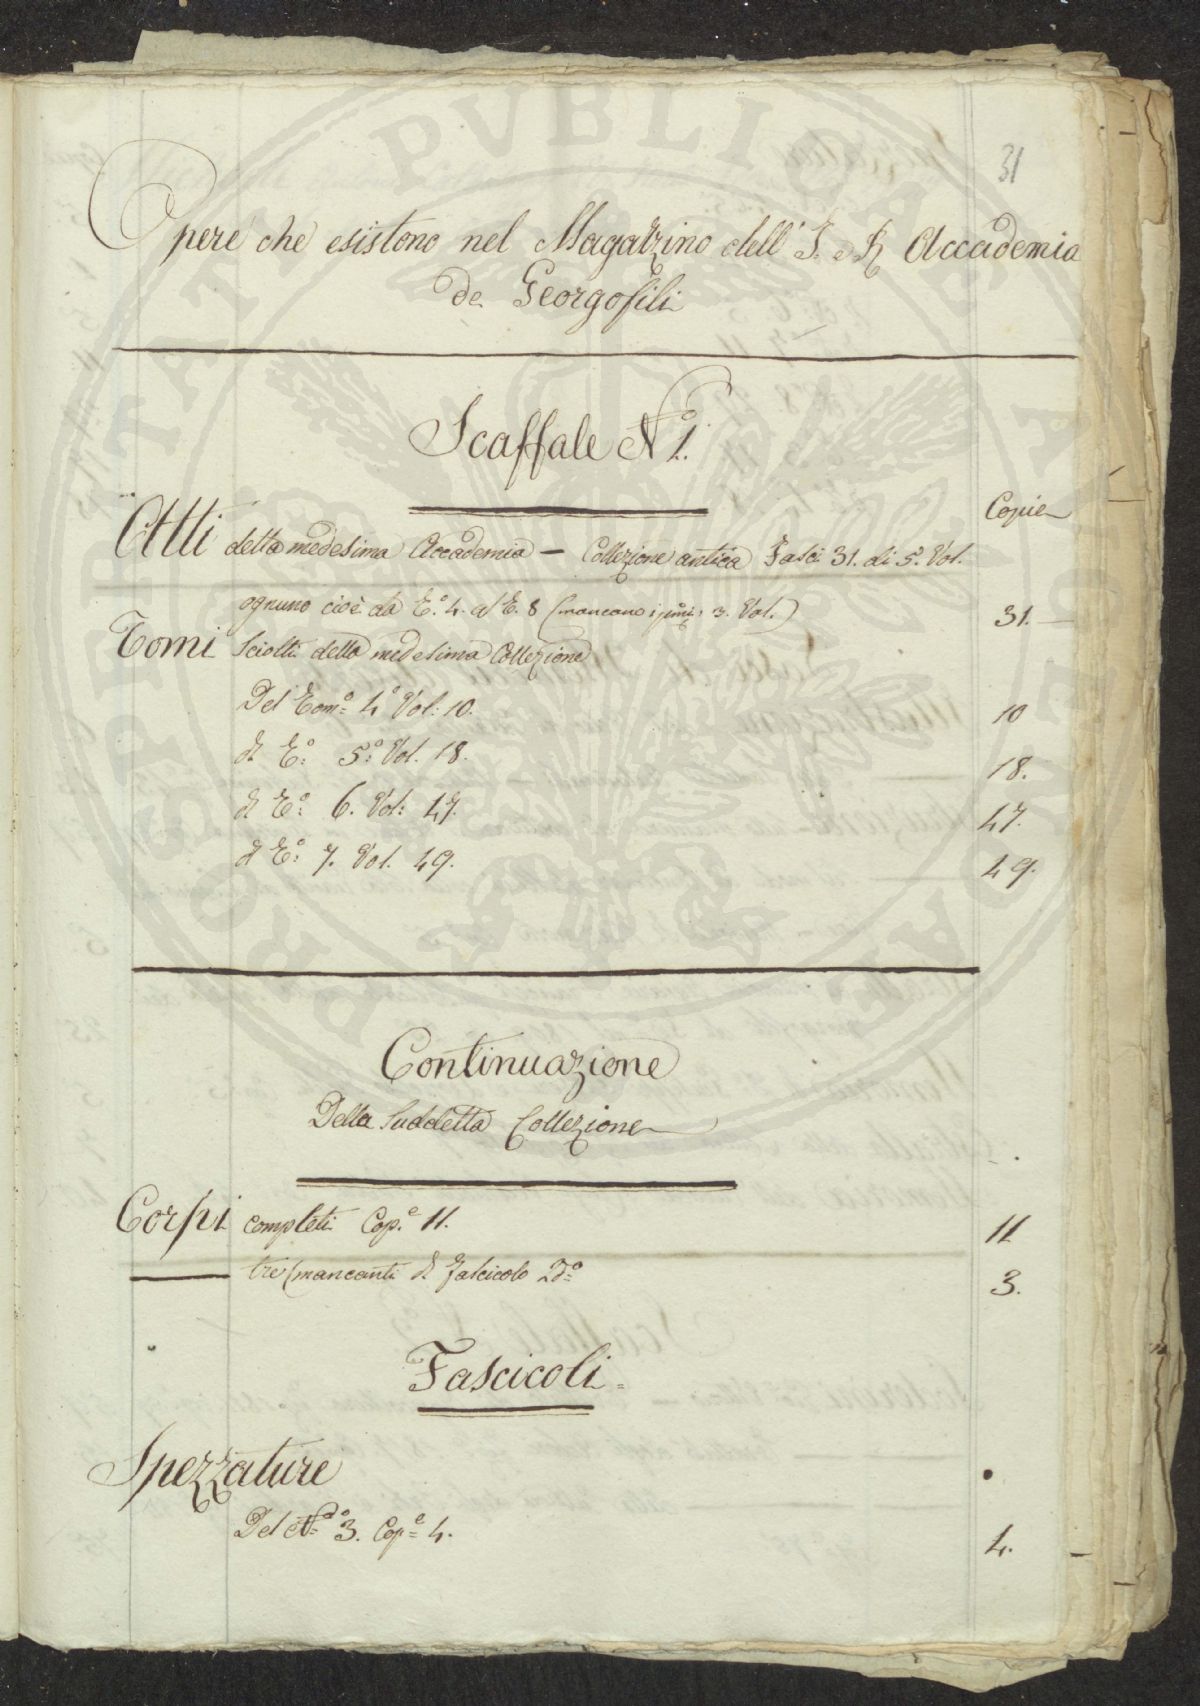 31
Opere che esistono nel Magazzino dell' I. e R. Accademia
de Georgofili
Scaffale N.º 1.
Copie
Atti della medesima Accademia — Collezione antica Fasci 31. di 5. Vol.
ognuno cioè da T.º 4. al T. 8 (mancano i primi 3. Vol.) 31.
Tomi Sciolti della medesima Collezione
Del Tom.º 4º Vol: 10. 10
di T.º 5º Vol. 18. 18.
di T.º 6. Vol: 47. 47.
di T.º 7. Vol. 49. 49.
Continuazione
Della Suddetta Collezione
Corpi completi Cop.e 11. 11
tre mancanti di Fascicolo 2do 3.
Fascicoli
Spezzature
Del N.º 3. Cop.e 4. 4.
PROSPERITATI PUBLICAE AUGENDAE